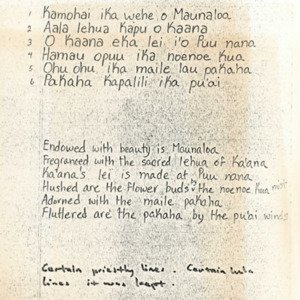 1 Kamohai ika wehe o Maunaloa
2 Aala lehua kapu o Kaana
3 O Kaana eka lei i'o Puu nana
4 Hamau opuu ika noenoe Kua
5 Ohu ohu ika maile lau pakaha
6 Pakaha Kapalili ika pu'ai
Endowed with beauty is Maunaloa
Fregranced with the sacred lehua of Ka'ana
Ka'ana's lei is made at Puu nana
Hushed are the flower buds by the noenoe Kua mist
Adorned with the maile pakaha
Fluttered are the pakaha by the pu'ai winds
Certain priestly lines. Certain hula
lines it was kept.